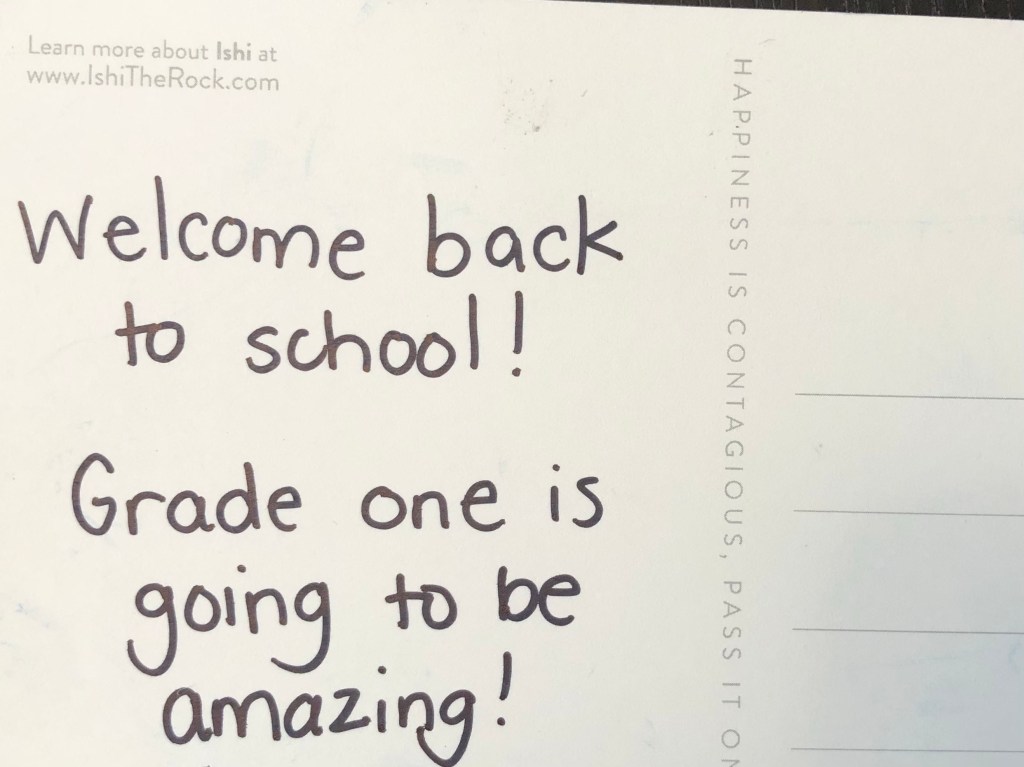 Learn more about Ishi at
www.IshiTheRock.com
Welcome back
to school!
Grade one is
going to be
amazing!
HAPPINESS IS CONTAGIOUS, PASS IT ON